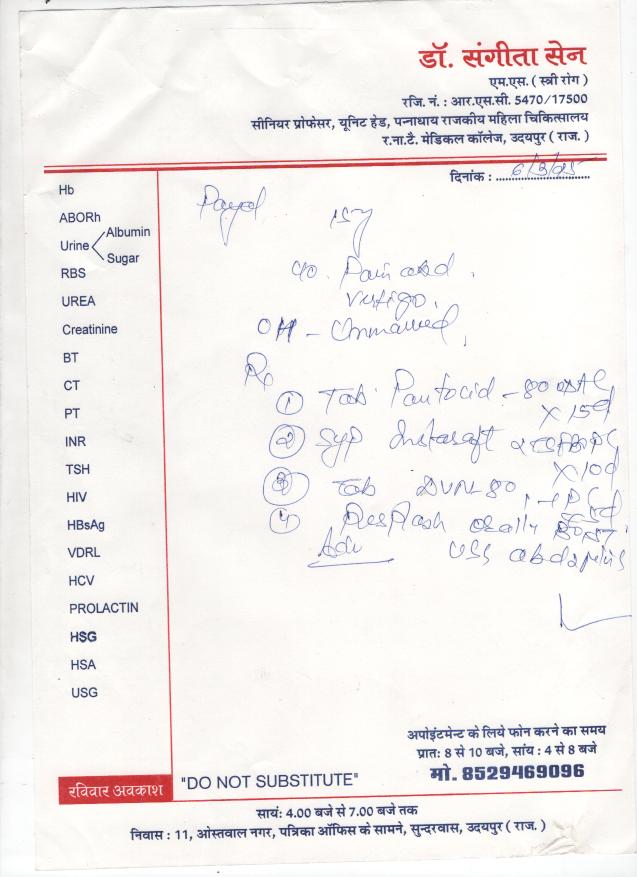 डॉ. संगीता सेन
एम.एस. ( स्त्री रोग )
रजि. नं. : आर.एस.सी. 5470/17500
सीनियर प्रोफेसर, यूनिट हेड, पन्नाधाय राजकीय महिला चिकित्सालय
र.ना.टै. मेडिकल कॉलेज, उदयपुर ( राज. )
दिनांक : 6/3/25
Hb
ABORh
Urine Albumin
Sugar
RBS
UREA
Creatinine
BT
CT
PT
INR
TSH
HIV
HBsAg
VDRL
HCV
PROLACTIN
HSG
HSA
USG
Payal 15y
c/o. Pain abd.
Vertigo.
OH - Unmarried,
Rx
① Tab. Pantocid - 80
x 15d
② Syp
x 10d
③ Tab
④ orally
Adv USS abd
अपोइंटमेन्ट के लिये फोन करने का समय
प्रातः 8 से 10 बजे, सांय : 4 से 8 बजे
मो. 8529469096
रविवार अवकाश
"DO NOT SUBSTITUTE"
सायं: 4.00 बजे से 7.00 बजे तक
निवास : 11, ओस्तवाल नगर, पत्रिका ऑफिस के सामने, सुन्दरवास, उदयपुर ( राज. )